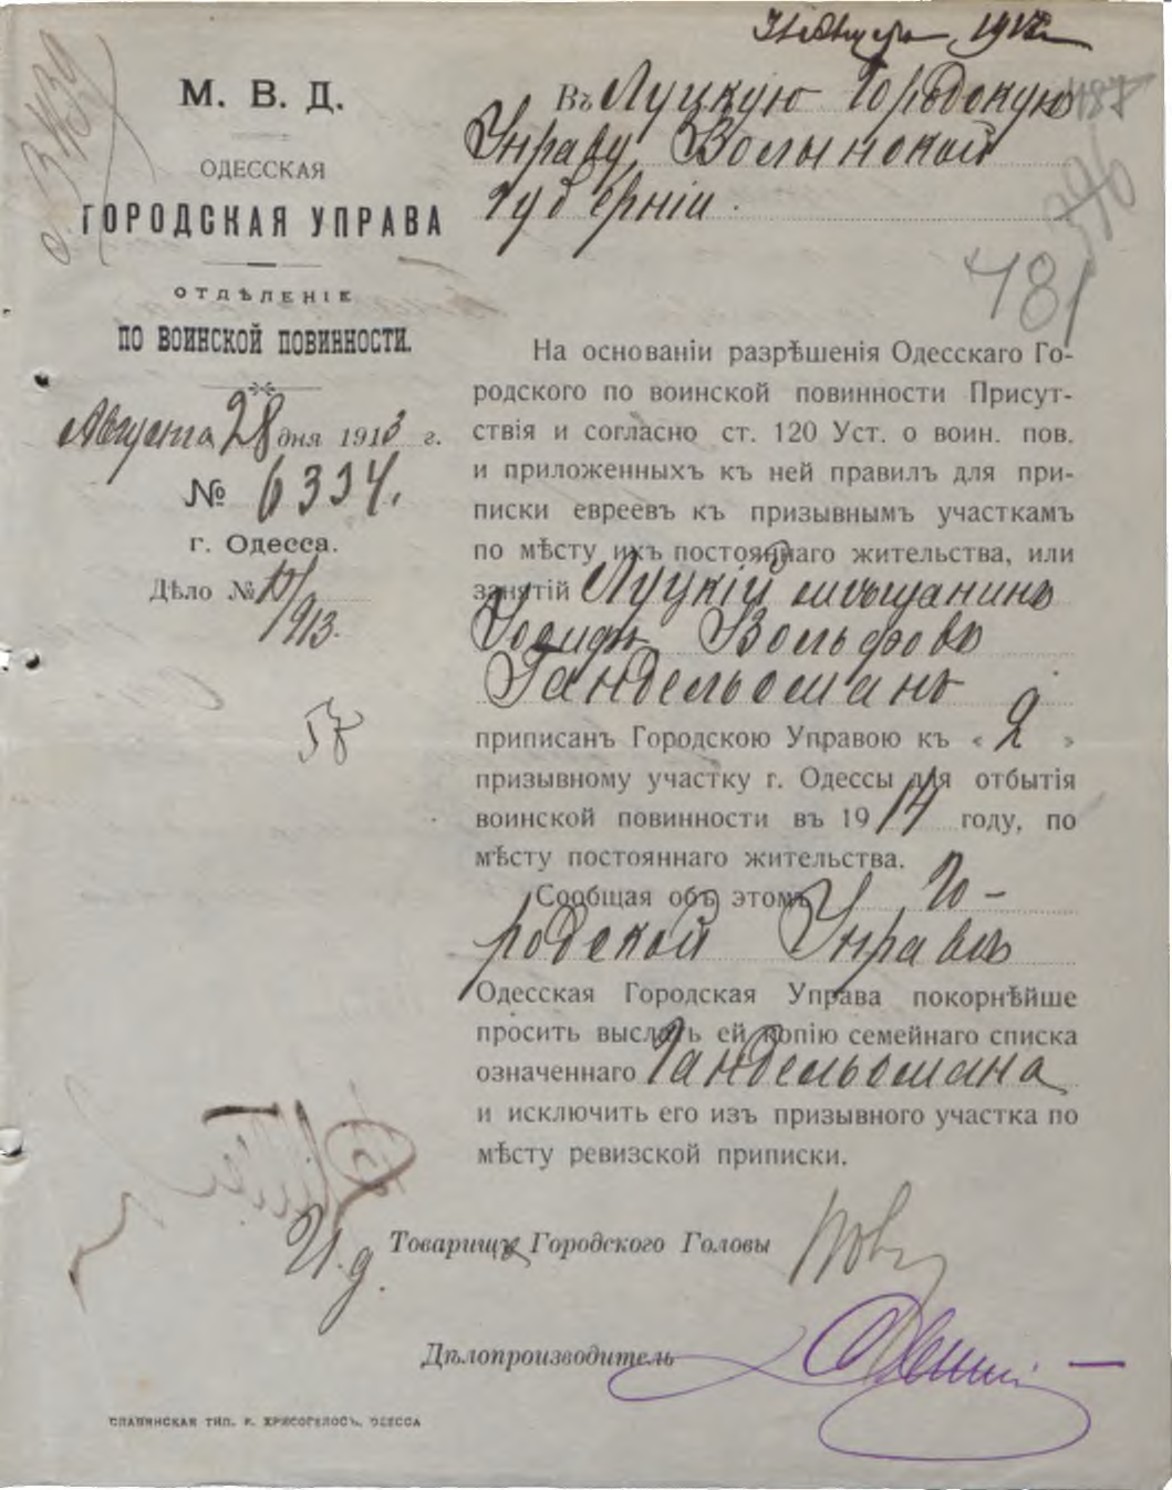 М. В. Д.
ОДЕССКАЯ
ГОРОДСКАЯ УПРАВА
ОТДѢЛЕНІЕ
ПО ВОИНСКОЙ ПОВИННОСТИ.
Августа 28 дня 1913 г.
№ 6334.
г. Одесса.
Дѣло №
/913.
Въ Луцкую Городскую
Управу, Волынской
губерніи.
487
396
481
На основаніи разрѣшенія Одесскаго Го-
родского по воинской повинности Присут-
ствія и согласно ст. 120 Уст. о воин. пов.
и приложенныхъ къ ней правилъ для при-
писки евреевъ къ призывнымъ участкамъ
по мѣсту ихъ постояннаго жительства, или
занятій Луцкій мѣщанинъ
Іосифъ Вольфовъ
Гандельсманъ
приписанъ Городскою Управою къ « 2 »
призывному участку г. Одессы для отбытія
воинской повинности въ 1914 году, по
мѣсту постояннаго жительства.
Сообщая объ этомъ Го-
родской Управѣ
Одесская Городская Управа покорнѣйше
проситъ выслать ей копію семейнаго списка
означеннаго Гандельсмана
и исключить его изъ призывного участка по
мѣсту ревизской приписки.
И. д. Товарища Городского Головы
Дѣлопроизводитель
СЛАВЯНСКАЯ ТИП. Н. ХРИСОГЕЛОСЪ, ОДЕССА